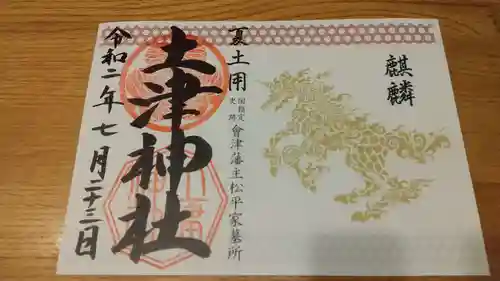 麒麟
夏土用
国指定
史跡
會津藩主松平家墓所
土津神社
令和二年七月二十三日